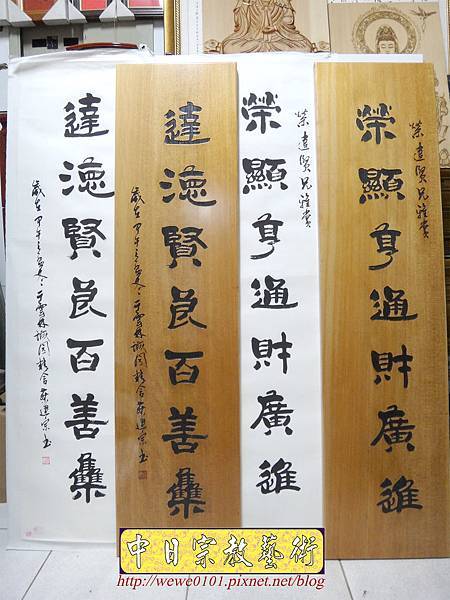 榮達賢兄雅賞
榮顯亨通財廣進
榮達賢兄雅賞
榮顯亨通財廣進
達德賢良百善集
歲在甲午
達德賢良百善集
歲在甲午
中日宗教藝術
http://wewe0101.pixnet.net/blog